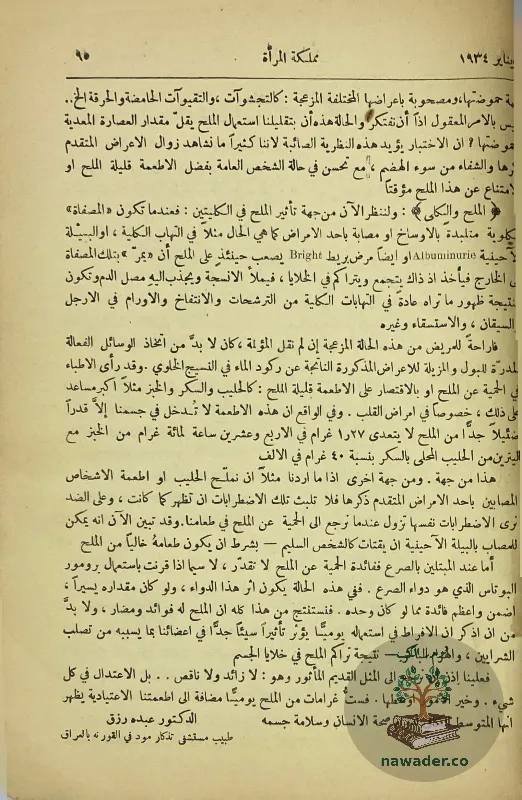 يناير ١٩٣٤ مملكة المرأة ٩٥
حموضتها، ومصحوبة باعراضها المختلفة المزعجة : كالتجشوآت ، والتقيوآت الحامضة والحرقة الخ ..
بالامر المعقول اذاً أن نفتكر والحالة هذه أن بتقليلنا استعمال الملح يقلّ مقدار العصارة المعدية
ان الاختبار يؤيد هذه النظرية الصائبة لاننا كثيراً ما نشاهد زوال الاعراض المتقدم
والشفاء من سوء الهضم ، مع تحسن في حالة الشخص العامة بفضل الاطعمة قليلة الملح او
عن هذا الملح مؤقتاً
﴿ الملح والكلى ﴾ : ولننظر الآن من جهة تأثير الملح في الكليتين : فعندما تكون «المصفاة»
متلبدة بالاوساخ او مصابة باحد الامراض كما هي الحال مثلاً في التهاب الكلية ، او البيلة
الآحينية Albuminurie او ايضاً مرض بريط Bright يصعب حينئذٍ على الملح أن «يمرّ» بتلك المصفاة
الى الخارج فيأخذ اذ ذاك يتجمع ويتراكم في الخلايا ، فيملأ الانسجة ويجذب اليه مصل الدم وتكون
النتيجة ظهور ما تراه عادة في التهابات الكلية من الترشحات والانتفاخ والاورام في الارجل
والسيقان ، والاستسقاء وغيره
فاراحةً للمريض من هذه الحالة المزعجة إن لم نقل المؤلمة ، كان لا بدَّ من اتخاذ الوسائل الفعالة
المدرّة للبول والمزيلة للاعراض المذكورة الناتجة عن ركود الماء في النسيج الخلوي . وقد رأى الاطباء
في الحمية عن الملح او بالاقتصار على الاطعمة قليلة الملح : كالحليب والسكر والخبز مثلاً اكبر مساعد
على ذلك ، خصوصاً في امراض القلب . وفي الواقع ان هذه الاطعمة لا تُدخل في جسمنا إلاَّ قدراً
ضئيلاً جداً من الملح لا يتعدى ١٫٢٧ غرام في الاربع وعشرين ساعة لمائة غرام من الخبز مع
ليترين من الحليب المحلى بالسكر بنسبة ٤٠ غرام في الالف
هذا من جهة . ومن جهة اخرى اذا ما اردنا مثلاً ان نملّح الحليب او اطعمة الاشخاص
المصابين باحد الامراض المتقدم ذكرها فلا تلبث تلك الاضطرابات ان تظهر كما كانت ، وعلى الضد
نرى الاضطرابات نفسها تزول عندما نرجع الى الحمية عن الملح في طعامنا . وقد تبين الآن انه يمكن
للمصاب بالبيلة الآحينية ان يقتات كالشخص السليم — بشرط ان يكون طعامهُ خالياً من الملح
أما عند المبتلين بالصرع ففائدة الحمية عن الملح لا تقدّر ، لا سيما اذا قرنت باستعمال برومور
البوتاس الذي هو دواء الصرع . ففي هذه الحالة يكون اثر هذا الدواء ، ولو كان مقداره يسيراً ،
اضمن واعظم فائدة مما لو كان وحده . فنستنتج من هذا كله ان الملح له فوائد ومضار ، ولا بدَّ
من ان اذكر ان الافراط في استعماله يوميًّا يؤثر تأثيراً سيئاً جدًّا في اعضائنا بما يسببه من تصلب
الشرايين ، والهرم — نتيجة تراكم الملح في خلايا الجسم
فعلينا إذن الى المثل القديم المأثور وهو : لا زائد ولا ناقص . . بل الاعتدال في كل
شيء . وخير . فستُّ غرامات من الملح يوميًّا مضافة الى اطعمتنا الاعتيادية يظهر
انها المتوسط صحة الانسان وسلامة جسمه الدكتور عبده رزق
طبيب مستشفى تذكار مود في القورنه بالعراق
nawader.co